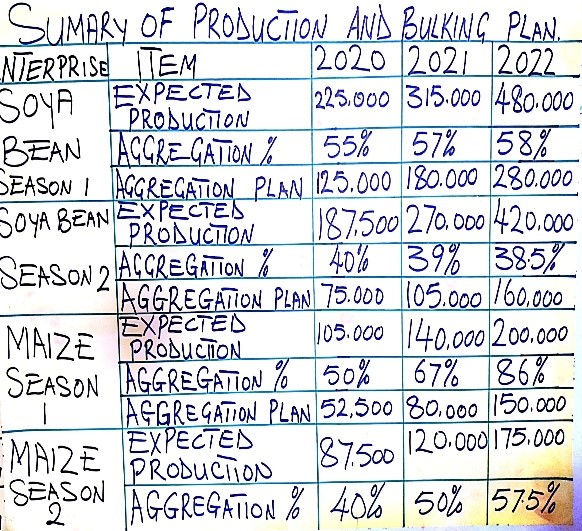 SUMARY OF PRODUCTION AND BULKING PLAN.
NTERPRISE ITEM 2020 2021 2022
SOYA BEAN SEASON 1 EXPECTED PRODUCTION 225.000 315.000 480.000
AGGREGATION % 55% 57% 58%
AGGREGATION PLAN 125.000 180.000 280.000
SOYA BEAN SEASON 2 EXPECTED PRODUCTION 187.500 270.000 420.000
AGGREGATION % 40% 39% 38.5%
AGGREGATION PLAN 75.000 105.000 160,000
MAIZE SEASON 1 EXPECTED PRODUCTION 105.000 140,000 200.000
AGGREGATION % 50% 67% 86%
AGGREGATION PLAN 52,500 80,000 150.000
MAIZE SEASON 2 EXPECTED PRODUCTION 87.500 120.000 175.000
AGGREGATION % 40% 50% 57.5%